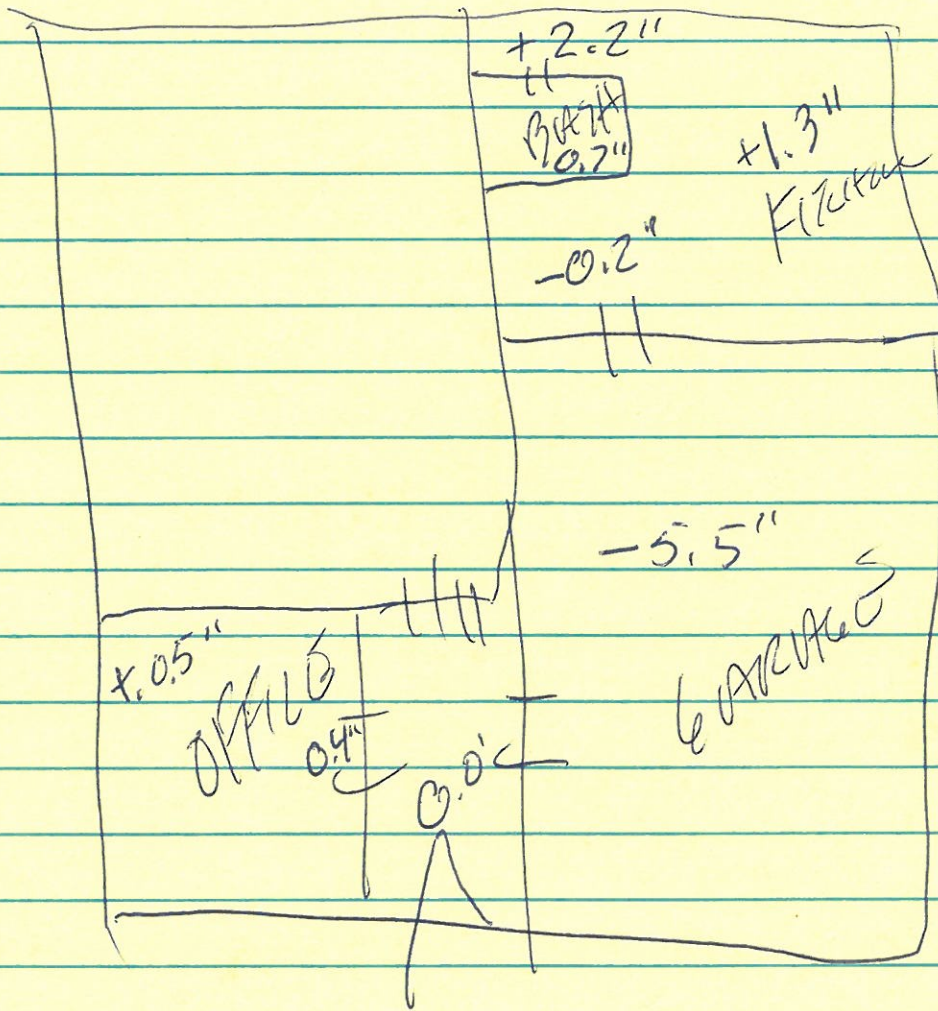 +2.2"
BATH
0.7"
+1.3"
Kitchen
-0.2"
-5.5"
GARAGE
+.05"
OFFICE
0.4"
0.0'